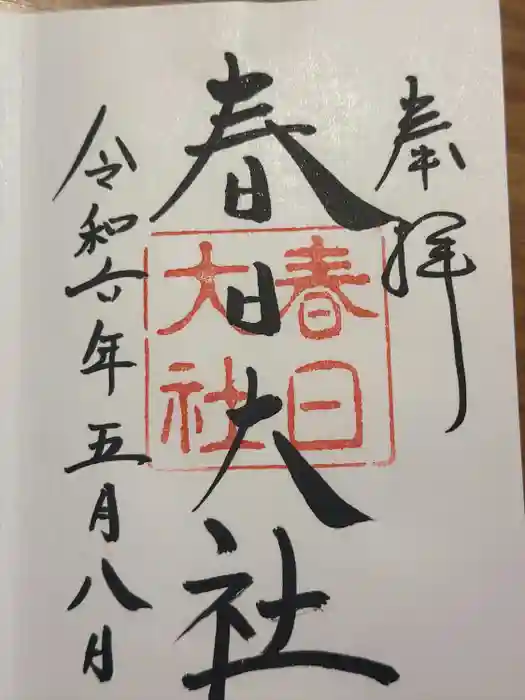 奉拝
春日大社
春日
大社
令和六年五月八日